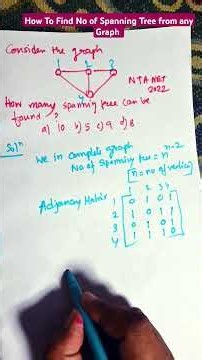 How To Find No of Spanning Tree from any
Graph
Consider the graph
1 2 3
4
NTA NET
2022
How many spanning tree can be
found,
a) 10 b) 5 c) 9 d) 8
Solⁿ
We in complete graph
No of Spanning tree = n^n-2
[n = no of vertics]
Adjancany Matrix
1 0 1 0 1
2 1 0 1 1
3 0 1 0 1
4 1 1 1 0